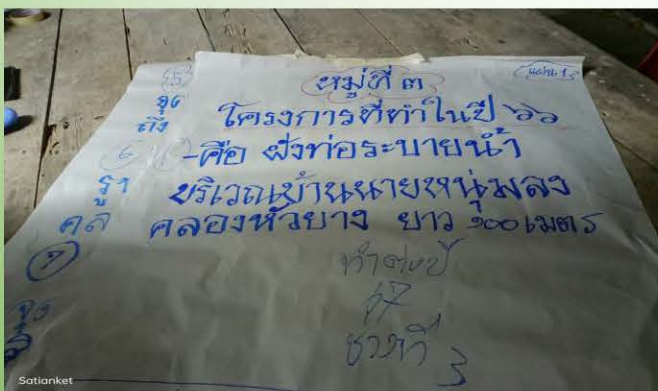 แผ่น.1
หมู่ที่ ๓
โครงการที่ทำในปี ๖๖
-คือ ฝังท่อระบายน้ำ
บริเวณบ้านนายหนุ่มลง
คลองหัวยาง ยาว ๑๐๐ เมตร
ทำต่อปี
67
ช่วงที่ 3
5
ถึง
6
คล
7
Satianket